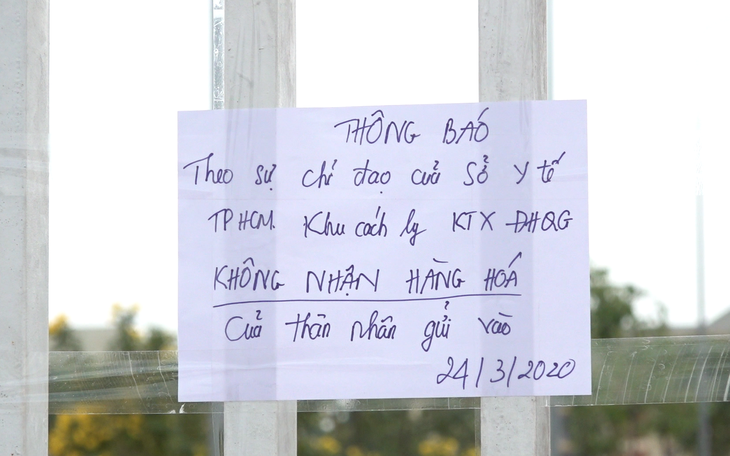 THÔNG BÁO
Theo sự chỉ đạo của Sở Y tế
TP HCM. Khu cách ly KTX ĐHQG
KHÔNG NHẬN HÀNG HOÁ
Của thân nhân gửi vào
24/3/2020